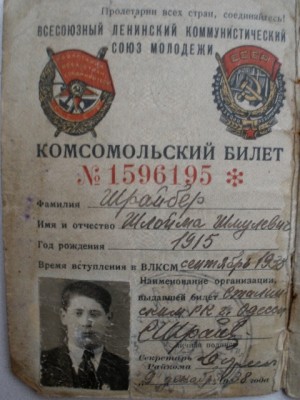 Пролетарии всех стран, соединяйтесь!
ВСЕСОЮЗНЫЙ ЛЕНИНСКИЙ КОММУНИСТИЧЕСКИЙ
СОЮЗ МОЛОДЕЖИ
СССР
КОМСОМОЛЬСКИЙ БИЛЕТ
№ 1596195 *
Фамилия Шрайбер
Имя и отчество Шлойма Шмулевич
Год рождения 1915
Время вступления в ВЛКСМ сентябрь
Наименование организации,
выдавшей билет
РК г. Одессы
личная подпись
Секретарь
Райкома
1938 года